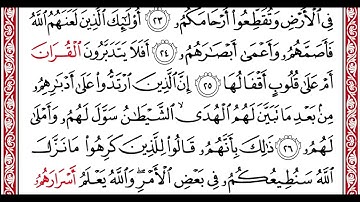 فِي ٱلۡأَرۡضِ وَتُقَطِّعُوٓاْ أَرۡحَامَكُمُۥ ٢٣ أُوْلَٰٓئِكَ ٱلَّذِينَ لَعَنَهُمُ ٱللَّهُ
فَأَصَمَّهُمُۥ وَأَعۡمَىٰ أَبۡصَٰرَهُمُۥ ٢٤ أَفَلَا يَتَدَبَّرُونَ ٱلۡقُرَانَ
أَمۡ عَلَىٰ قُلُوبٍ أَقۡفَالُهَا ٢٥ إِنَّ ٱلَّذِينَ ٱرۡتَدُّواْ عَلَىٰ أَدۡبَٰرِهِمُۥ
مِنۢ بَعۡدِ مَا تَبَيَّنَ لَهُمُ ٱلۡهُدَى ٱلشَّيۡطَٰنُ سَوَّلَ لَهُمُۥ وَأَمۡلَىٰ
لَهُمُۥ ٢٦ ذَٰلِكَ بِأَنَّهُمُۥ قَالُواْ لِلَّذِينَ كَرِهُواْ مَا نَزَّلَ
ٱللَّهُ سَنُطِيعُكُمُۥ فِي بَعۡضِ ٱلۡأَمۡرِ وَٱللَّهُ يَعۡلَمُ أَسۡرَارَهُمُۥ